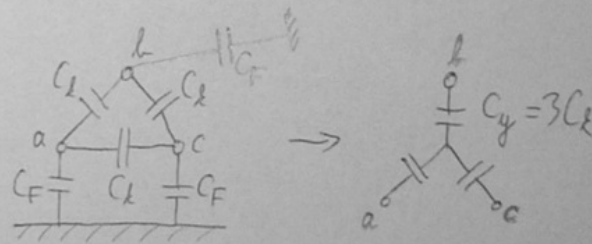 b
C_F
C_k
C_k
a
c
C_F
C_k
C_F
b
C_y = 3C_k
a
c